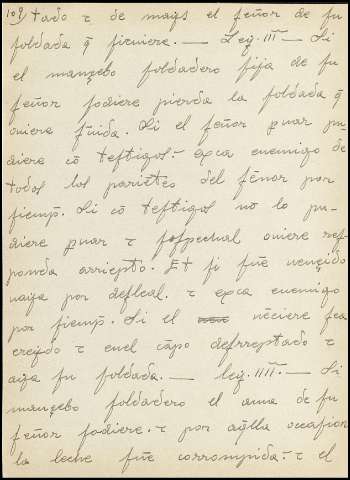 109 tado τ de mays el señor de su
soldada q̄ siruiere. — Leȳ. IIII — Si
el mançebo soldadero fija de su
señor fodiere pierda la soldada q̄
ouiere s̄uida. Si el señor p̄uar pu-
diere cō testigos. exca enemigo de
todos los pariētes del señor por
siemp̄. Si cō testigos no lo pu-
diere p̄uar τ sospechal ouiere res-
ponda arriepto. Et si fue vençido
vaya por desleal. τ exca enemigo
por siemp̄. Si el vēciere sea
creydo τ enel cāpo desrreptado τ
aya su soldada. — leȳ. IIII. — Si
mançebo soldadero el ama de su
señor fodiere. τ por aq̄lla occasion
la leche fue corrompida. τ el